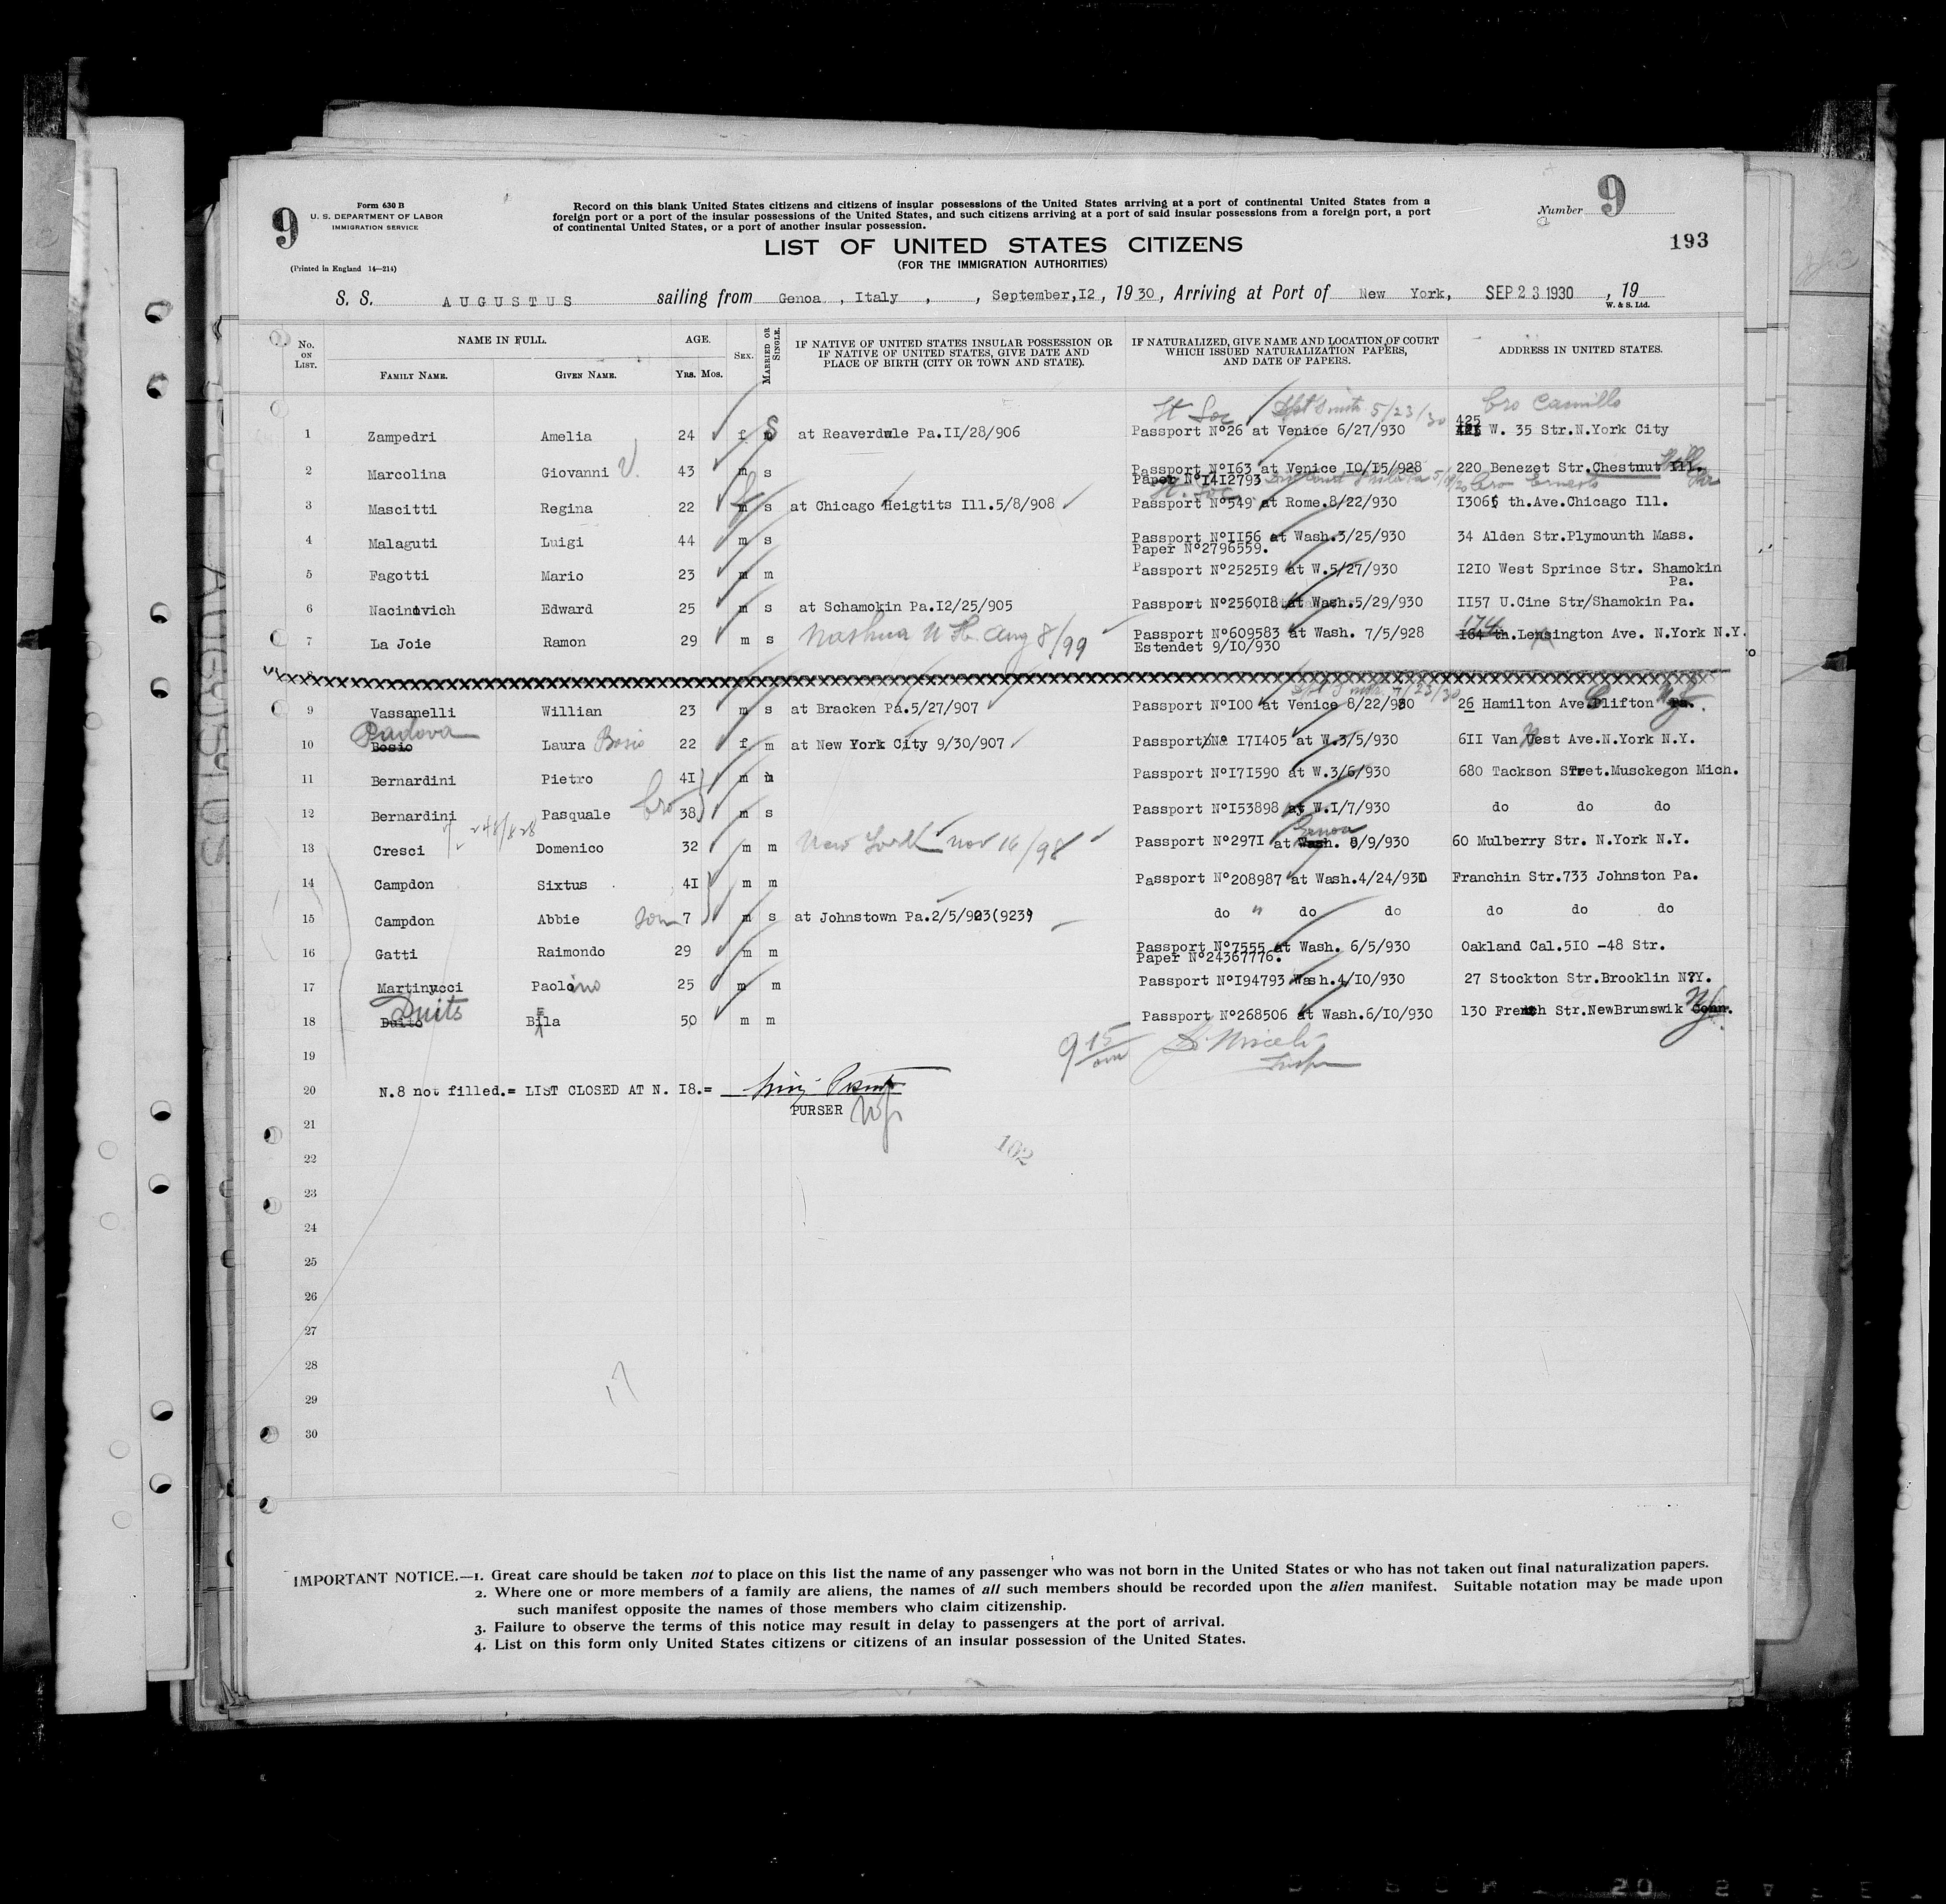 9
Form 630 B
U. S. DEPARTMENT OF LABOR
IMMIGRATION SERVICE
(Printed in England 14—214)
Record on this blank United States citizens and citizens of insular possessions of the United States arriving at a port of continental United States from a
foreign port or a port of the insular possessions of the United States, and such citizens arriving at a port of said insular possessions from a foreign port, a port
of continental United States, or a port of another insular possession.
LIST OF UNITED STATES CITIZENS
(FOR THE IMMIGRATION AUTHORITIES)
Number 9
193
S. S. AUGUSTUS sailing from Genoa , Italy , , September,I2 , 1930 , Arriving at Port of New York, SEP 23 1930 , 19
W. & S. Ltd.
No. ON LIST. NAME IN FULL. AGE. SEX. MARRIED OR SINGLE. IF NATIVE OF UNITED STATES INSULAR POSSESSION OR IF NATIVE OF UNITED STATES, GIVE DATE AND PLACE OF BIRTH (CITY OR TOWN AND STATE). IF NATURALIZED, GIVE NAME AND LOCATION OF COURT WHICH ISSUED NATURALIZATION PAPERS, AND DATE OF PAPERS. ADDRESS IN UNITED STATES.
FAMILY NAME. GIVEN NAME. YRS. MOS.
5/23/30 bro Camillo
1 Zampedri Amelia 24 f S at Reaverdale Pa.II/28/906 Passport N°26 at Venice 6/27/930 425 W. 35 Str.N.York City
2 Marcolina Giovanni V. 43 m s Passport N°I63 at Venice IO/I5/928 220 Benezet Str.Chestnut Ill.
Paper N°I4I2793 bro Ernesto
3 Mascitti Regina 22 f s at Chicago Heigtits Ill.5/8/908 Passport N°549 at Rome.8/22/930 th.Ave.Chicago Ill.
4 Malaguti Luigi 44 m s Passport N°II56 at Wash.3/25/930 34 Alden Str.Plymounth Mass.
Paper N°2796559.
5 Fagotti Mario 23 m m Passport N°2525I9 at W.5/27/930 I2IO West Sprince Str. Shamokin
Pa.
6 Nacinovich Edward 25 m s at Schamokin Pa.I2/25/905 Passport N°2560I8 at Wash.5/29/930 II57 U.Cine Str/Shamokin Pa.
7 La Joie Ramon 29 m s Nashua N H. Aug 8/99 Passport N°609583 at Wash. 7/5/928 174 th.Lensington Ave. N.York N.Y.
Estendet 9/10/930
7/23/30
9 Vassanelli Willian 23 m s at Bracken Pa.5/27/907 Passport N°IOO at Venice 8/22/930 26 Hamilton Ave.Clifton N J
Padova
10 Bosio Laura Bosio 22 f m at New York City 9/30/907 Passport N° I7I405 at W.3/5/930 6II Van Nest Ave.N.York N.Y.
11 Bernardini Pietro 4I m m Passport N°I7I590 at W.3/6/930 680 Tackson Stret.Musckegon Mich.
12 Bernardini Pasquale bro 38 m s Passport N°I53898 at W.I/7/930 do do do
Genoa
13 Cresci Domenico 32 m m New York nov 16/98 Passport N°297I at Wash. 9/9/930 60 Mulberry Str. N.York N.Y.
14 Campdon Sixtus 4I m m Passport N°208987 at Wash.4/24/930 Franchin Str.733 Johnston Pa.
15 Campdon Abbie son 7 m s at Johnstown Pa.2/5/923(923) do " do do do do do
16 Gatti Raimondo 29 m m Passport N°7555 at Wash. 6/5/930 Oakland Cal.5IO -48 Str.
Paper N°24367776.
17 Martinucci Paolino 25 m m Passport N°I94793 Wash.4/10/930 27 Stockton Str.Brooklin N.Y.
Duits
18 Duito Bila 50 m m Passport N°268506 at Wash.6/10/930 130 French Str.NewBrunswik Conn. NJ.
19 9 15 am
20 N.8 not filled.= LIST CLOSED AT N. I8.=
PURSER
21
102
22
23
24
25
26
27
28
29
30
IMPORTANT NOTICE.—1. Great care should be taken not to place on this list the name of any passenger who was not born in the United States or who has not taken out final naturalization papers.
2. Where one or more members of a family are aliens, the names of all such members should be recorded upon the alien manifest. Suitable notation may be made upon
such manifest opposite the names of those members who claim citizenship.
3. Failure to observe the terms of this notice may result in delay to passengers at the port of arrival.
4. List on this form only United States citizens or citizens of an insular possession of the United States.